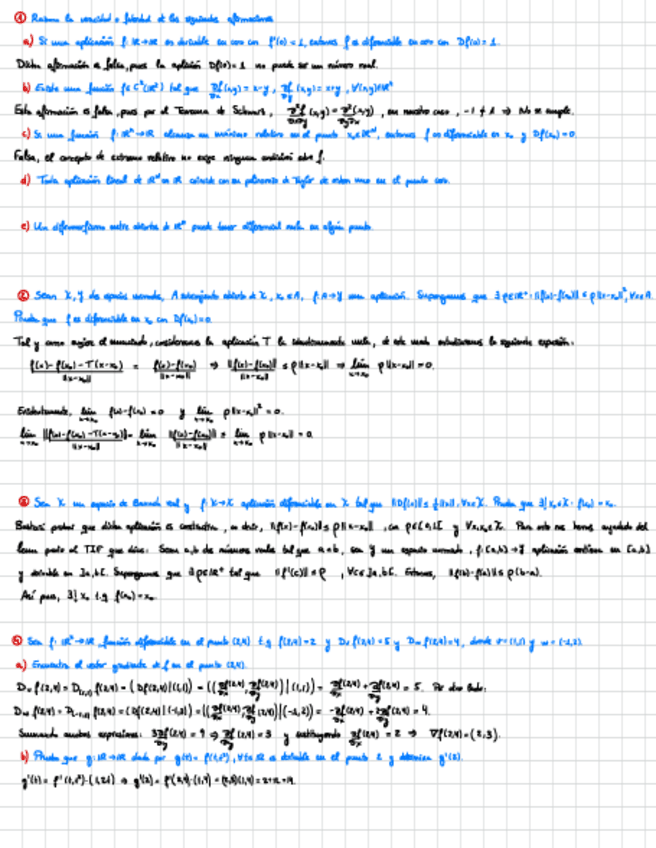 ① Razona la veracidad o falsedad de las siguientes afirmaciones
a) Si una aplicación f: ℝ→ℝ es derivable en cero con f'(0)=1, entonces f es diferenciable en cero con Df(0)=1.
Dicha afirmación es falsa, pues la aplicación Df(0)=1 no puede ser un número real.
b) Existe una función f∈C²(ℝ²) tal que ∂f/∂x (x,y)=x-y, ∂f/∂y (x,y)=x+y, ∀(x,y)∈ℝ²
Esta afirmación es falsa, pues por el Teorema de Schwarz, en nuestro caso, -1≠1 ⇒ No se cumple.
c) Si una función f: ℝᴺ→ℝ alcanza un máximo relativo en el punto x₀∈ℝᴺ, entonces f es diferenciable en x₀ y Df(x₀)=0.
Falso, el concepto de extremo relativo no exige ninguna condición sobre f.
d) Toda aplicación lineal de ℝᴺ en ℝ coincide con su polinomio de Taylor de orden uno en el punto cero.
e) Un difeomorfismo entre abiertos de ℝᴺ puede tener diferencial nula en algún punto.
② Sean X, Y dos espacios normados, A subconjunto abierto de X, x₀∈A, f: A→Y una aplicación. Supongamos que ∃ρ∈ℝ⁺: ||f(x)-f(x₀)|| ≤ ρ||x-x₀||², ∀x∈A.
Prueba que f es diferenciable en x₀ con Df(x₀)=0
Tal y como sugiere el enunciado, consideremos la aplicación T la idénticamente nula, de este modo estudiaremos la siguiente expresión:
(f(x)-f(x₀)-T(x-x₀))/||x-x₀|| = (f(x)-f(x₀))/||x-x₀|| ⇒ ||f(x)-f(x₀)||/||x-x₀|| ≤ ρ||x-x₀|| ⇒ lim x→x₀ ρ||x-x₀||=0.
Evidentemente, lim x→x₀ f(x)-f(x₀)=0 y lim x→x₀ ρ||x-x₀||²=0.
lim x→x₀ ||f(x)-f(x₀)-T(x-x₀)||/||x-x₀|| = lim x→x₀ ||f(x)-f(x₀)||/||x-x₀|| ≤ lim x→x₀ ρ||x-x₀||=0
③ Sea X un espacio de Banach real y f: X→X aplicación diferenciable en X tal que ∀x∈X. Prueba que ∃! x₀∈X: f(x₀)=x₀.
Bastará probar que dicha aplicación es contractiva, es decir, ||f(x)-f(x₀)|| ≤ ρ||x-x₀||, con ρ∈[0,1[ y ∀x,x₀∈X. Para esto nos hemos ayudado del
lema para el TIF que dice: Sean a,b dos números reales tal que a<b, sea Y un espacio normado, f: [a,b]→Y aplicación continua en [a,b]
y derivable en ]a,b[. Supongamos que ∃ρ∈ℝ⁺ tal que ||f'(c)|| ≤ρ, ∀c∈]a,b[. Entonces, ||f(b)-f(a)|| ≤ρ(b-a).
Así pues, ∃! x₀ t.q f(x₀)=x₀.
④ Sea f: ℝ²→ℝ función diferenciable en el punto (2,4) t.q f(2,4)=2 y Dᵥf(2,4)=5 y D𝓌f(2,4)=4, donde v=(1,1) y w=(-1,2).
a) Encuentra el vector gradiente de f en el punto (2,4).
Dᵥf(2,4)=D₍₁,₁₎f(2,4)=(Df(2,4)|(1,1))=((∂f/∂x (2,4), ∂f/∂y (2,4))|(1,1))= ∂f/∂x (2,4)+∂f/∂y (2,4)=5. Por otro lado:
D𝓌f(2,4)=D₍₋₁,₂₎f(2,4)=(Df(2,4)|(-1,2))=((∂f/∂x (2,4), ∂f/∂y (2,4))|(-1,2))= -∂f/∂x (2,4)+2∂f/∂y (2,4)=4.
Sumando ambas expresiones: 3∂f/∂y (2,4)=9 ⇒ ∂f/∂y (2,4)=3 y sustituyendo ∂f/∂x (2,4)=2 ⇒ ∇f(2,4)=(2,3).
b) Prueba que g: ℝ→ℝ dada por g(t)=f(t,t²), ∀t∈ℝ es derivable en el punto 2 y determina g'(2).
g'(t)=f'(t,t²)·(1,2t) ⇒ g'(2)=f'(2,4)·(1,4)=(2,3)(1,4)=2+12=14.